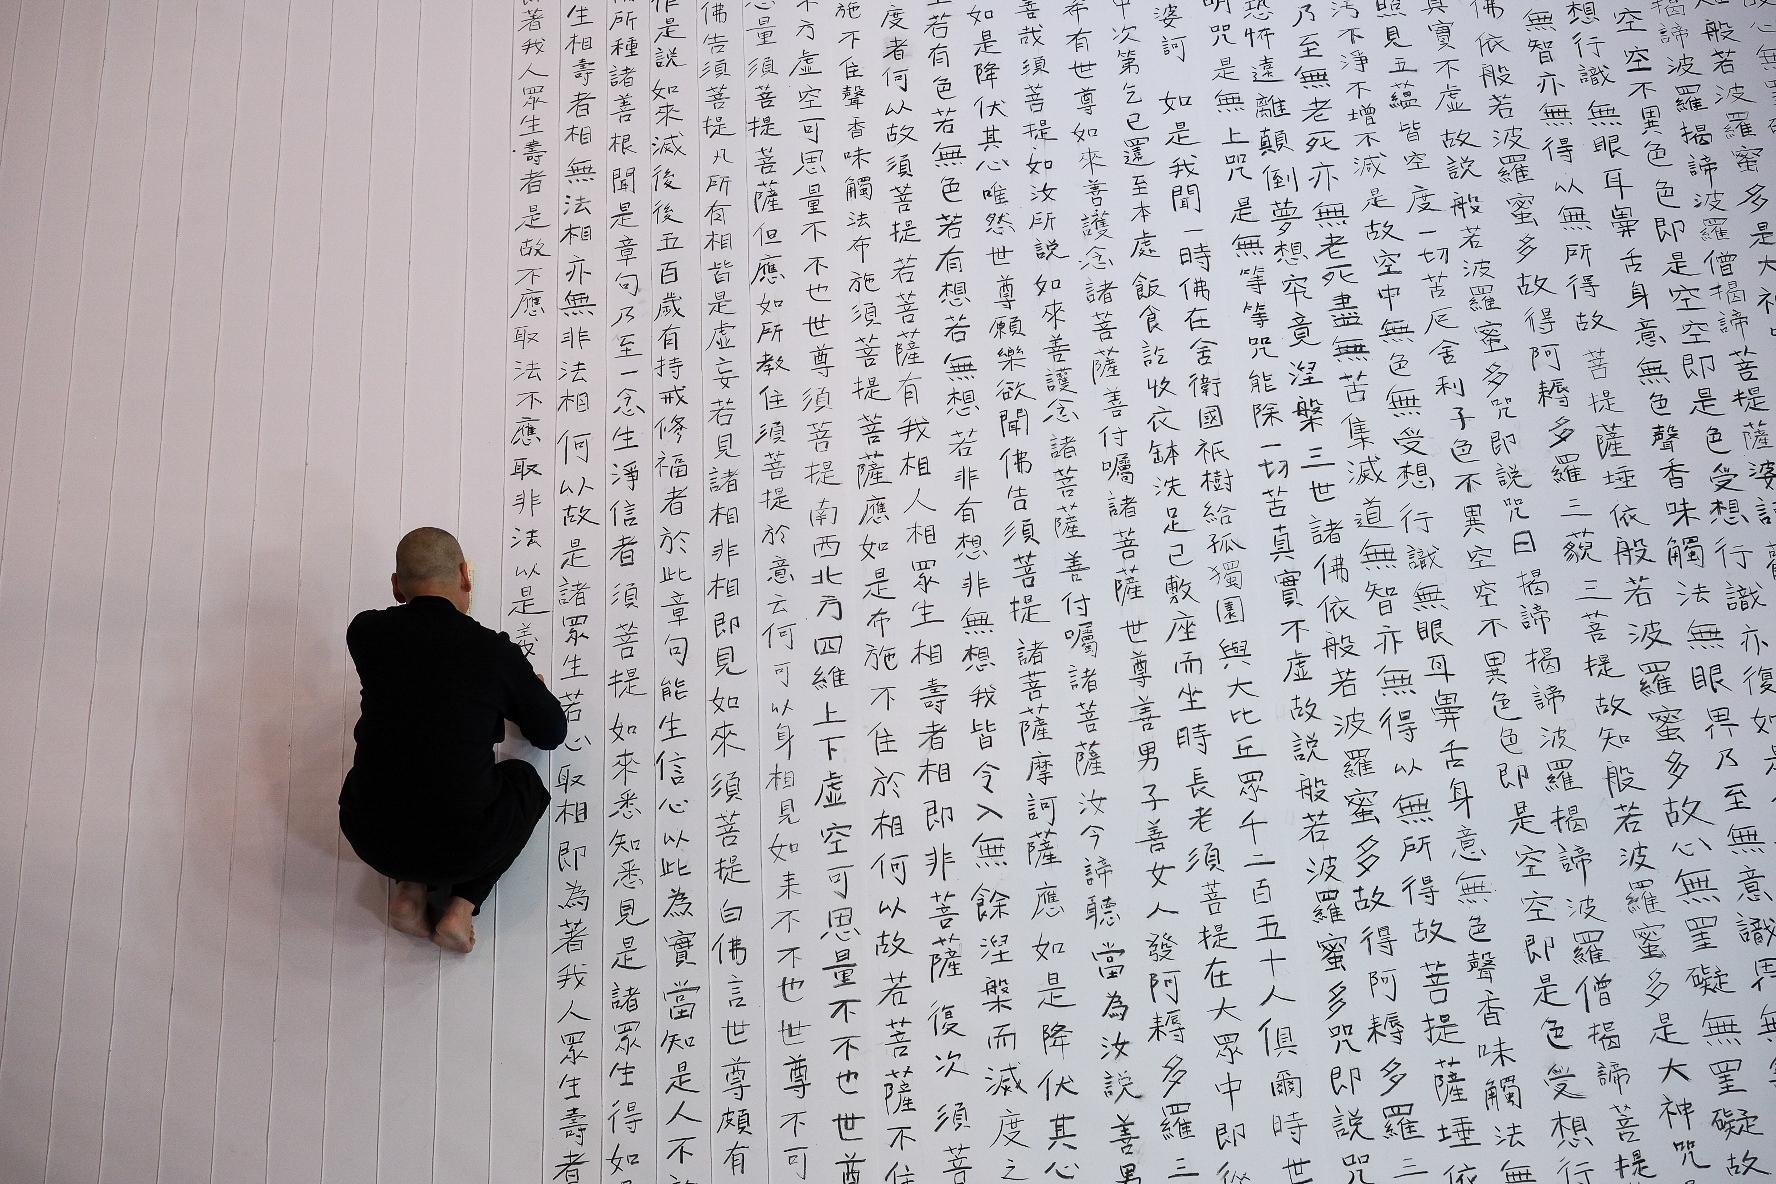 故心無罣
般若波羅蜜多是大神
揭諦波羅揭諦波羅僧揭諦菩提薩婆訶
空空不異色色即是空空即是色受想行識亦復如是
想行識無眼耳鼻舌身意無色聲香味觸法無眼界乃至無意識界無
無智亦無得以無所得故菩提薩埵依般若波羅蜜多故心無罣礙無罣礙故
佛依般若波羅蜜多故得阿耨多羅三藐三菩提故知般若波羅蜜多是大神咒
真實不虛故說般若波羅蜜多咒即說咒曰揭諦揭諦波羅揭諦波羅僧揭諦菩提
照見五蘊皆空度一切苦厄舍利子色不異空空不異色色即是空空即是色受想行
汚不淨不增不減是故空中無色無受想行識無眼耳鼻舌身意無色聲香味觸法無
乃至無老死亦無老死盡無苦集滅道無智亦無得以無所得故菩提薩埵依
恐怖遠離顛倒夢想究竟涅槃三世諸佛依般若波羅蜜多故得阿耨多羅三
明咒是無上咒是無等等咒能除一切苦真實不虛故說般若波羅蜜多咒即說咒
婆訶 如是我聞一時佛在舍衛國祇樹給孤獨園與大比丘眾千二百五十人俱爾時世
中次第乞已還至本處飯食訖收衣鉢洗足已敷座而坐時長老須菩提在大眾中即從
希有世尊如來善護念諸菩薩善付囑諸菩薩世尊善男子善女人發阿耨多羅三
善哉須菩提如汝所說如來善護念諸菩薩善付囑諸菩薩汝今諦聽當為汝說善男
如是降伏其心唯然世尊願樂欲聞佛告須菩提諸菩薩摩訶薩應如是降伏其心
若有色若無色若有想若無想若非有想非無想我皆令入無餘涅槃而滅度之
度者何以故須菩提若菩薩有我相人相眾生相壽者相即非菩薩復次須菩
施不住聲香味觸法布施須菩提菩薩應如是布施不住於相何以故若菩薩不住
方虛空可思量不不也世尊須菩提南西北方四維上下虛空可思量不不也世尊
量須菩提菩薩但應如所教住須菩提於意云何可以身相見如來不不也世尊不可
佛告須菩提凡所有相皆是虛妄若見諸相非相即見如來須菩提白佛言世尊頗有
作是說如來滅後後五百歲有持戒修福者於此章句能生信心以此為實當知是人不
所種諸善根聞是章句乃至一念生淨信者須菩提如來悉知悉見是諸眾生得如
生相壽者相無法相亦無非法相何以故是諸眾生若心取相即為著我人眾生壽者
著我人眾生壽者是故不應取法不應取非法以是義